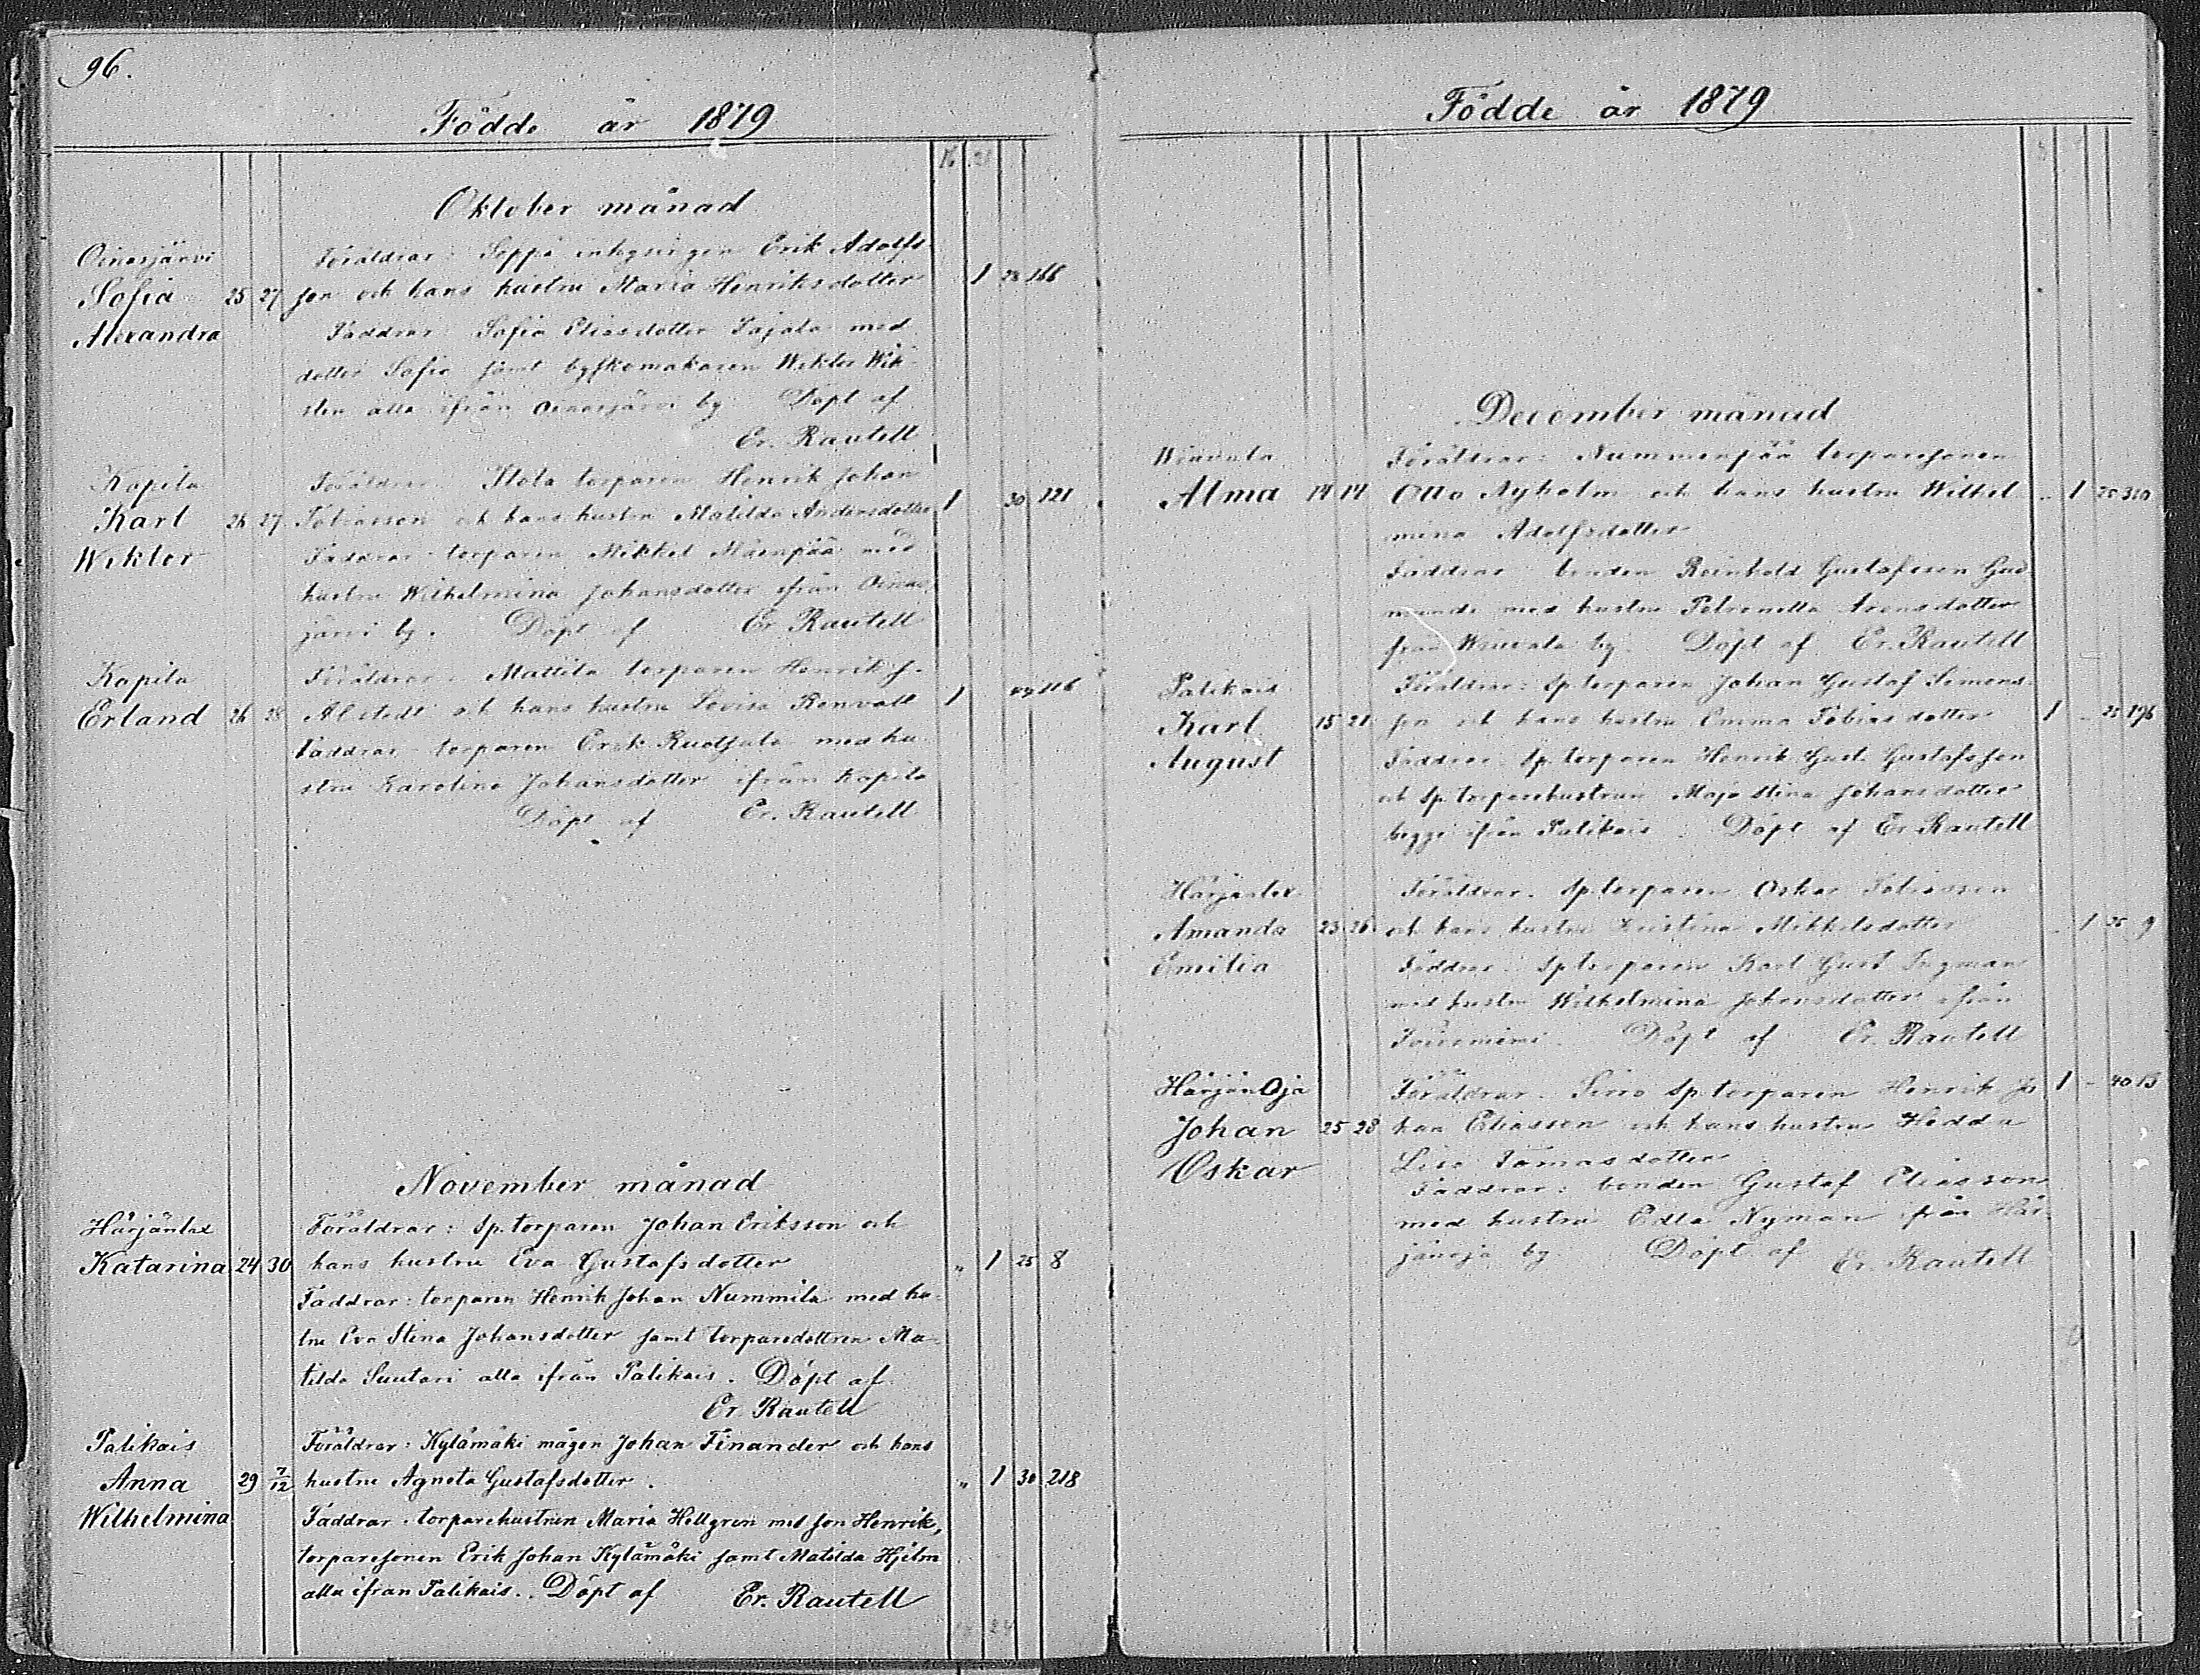 96.
Födde år 1879
Oktober månad
Oinasjärvi Föräldrar: Seppä inhysingen Erik Adolfs-
Sofia 25 27 son och hans hustru Maria Henriksdotter 1 28 166
Alexandra Faddrar: Sofia Eliasdotter Pajala med
dotter Sofia samt byskomakaren Wiktor Wik-
sten alla ifrån Oinasjärvi by. Döpt af
Er. Rautell
Kopila Föräldrar: Itola torparen Henrik Johan
Karl 26 27 Tobiasson och hans hustru Matilda Andersdotter 1 30 121
Wiktor Faddrar: torparen Mikkel Mäenpää med
hustru Wilhelmina Johansdotter ifrån Oinas-
järvi by. Döpt af Er Rautell
Kopila Föräldrar: Mattila torparen Henrik J.
Erland 26 28 Alstedt och hans hustru Lovisa Renvall 1 116
Faddrar: torparen Erik Ruotsala med hu-
stru Karolina Johansdotter ifrån Kopila
Döpt af Er. Rautell
November månad
Härjänlax Föräldrar: Sp. torparen Johan Eriksson och
Katarina 24 30 hans hustru Eva Gustafsdotter „ 1 25 8
Faddrar: torparen Henrik Johan Nummila med hu-
tru Eva Stina Johansdotter samt torparedottren Ma-
tilda Suutari alla ifrån Palikais. Döpt af
Er. Rautell
Palikais Föräldrar: Kylämäki mågen Johan Finander och hans
Anna 29 7/12 hustru Agneta Gustafsdotter. „ 1 30 218
Wilhelmina Faddrar: torparehustrun Maria Hellgren med son Henrik,
torparesonen Erik Johan Kylämäki samt Matilda Hjelm
alla ifran Palikais. Döpt af Er. Rautell
Födde år 1879
December månad
Föräldrar: Nummenpää torparesonen
Alma 14 14 Otto Nyholm och hans hustru Wilhel- „ 1 25 310
mina Adolfsdotter
Faddrar: bonden Reinhold Gustafsson
med hustru Petronella Arensdotter
från by. Döpt af Er. Rautell
Palikais Föräldrar: Sp. torparen Johan Gustaf Simons-
Karl 15 21 son och hans hustru Emma Tobiasdotter 1 - 25 196
August Faddrar: Sp. torparen Henrik Gust. Gustafsson
och Sp. torparehustrun Maja Stina Johansdotter
begge ifrån Palikais. Döpt af Er Rautell
Härjänlax Föräldrar: Sp. torparen Oskar Tobiasson
Amanda 23 26 och hans hustru Kristina Mikkelsdotter 1 25 9
Emilia Faddrar: Sp torparen Karl Gust Ingman
med hustru Wilhelmina Johansdotter ifrån
Döpt af Er. Rautell
Härjänoja Föräldrar: Sirro Sp. torparen Henrik Jo 1 - 40 13
Johan 25 28 han Eliasson och hans hustru Hedda
Oskar Lisa Tomasdotter
Faddrar: bonden Gustaf Eliasson
med hustru Edla Nyman ifrån Här-
jänoja by. Döpt af Er. Rautell